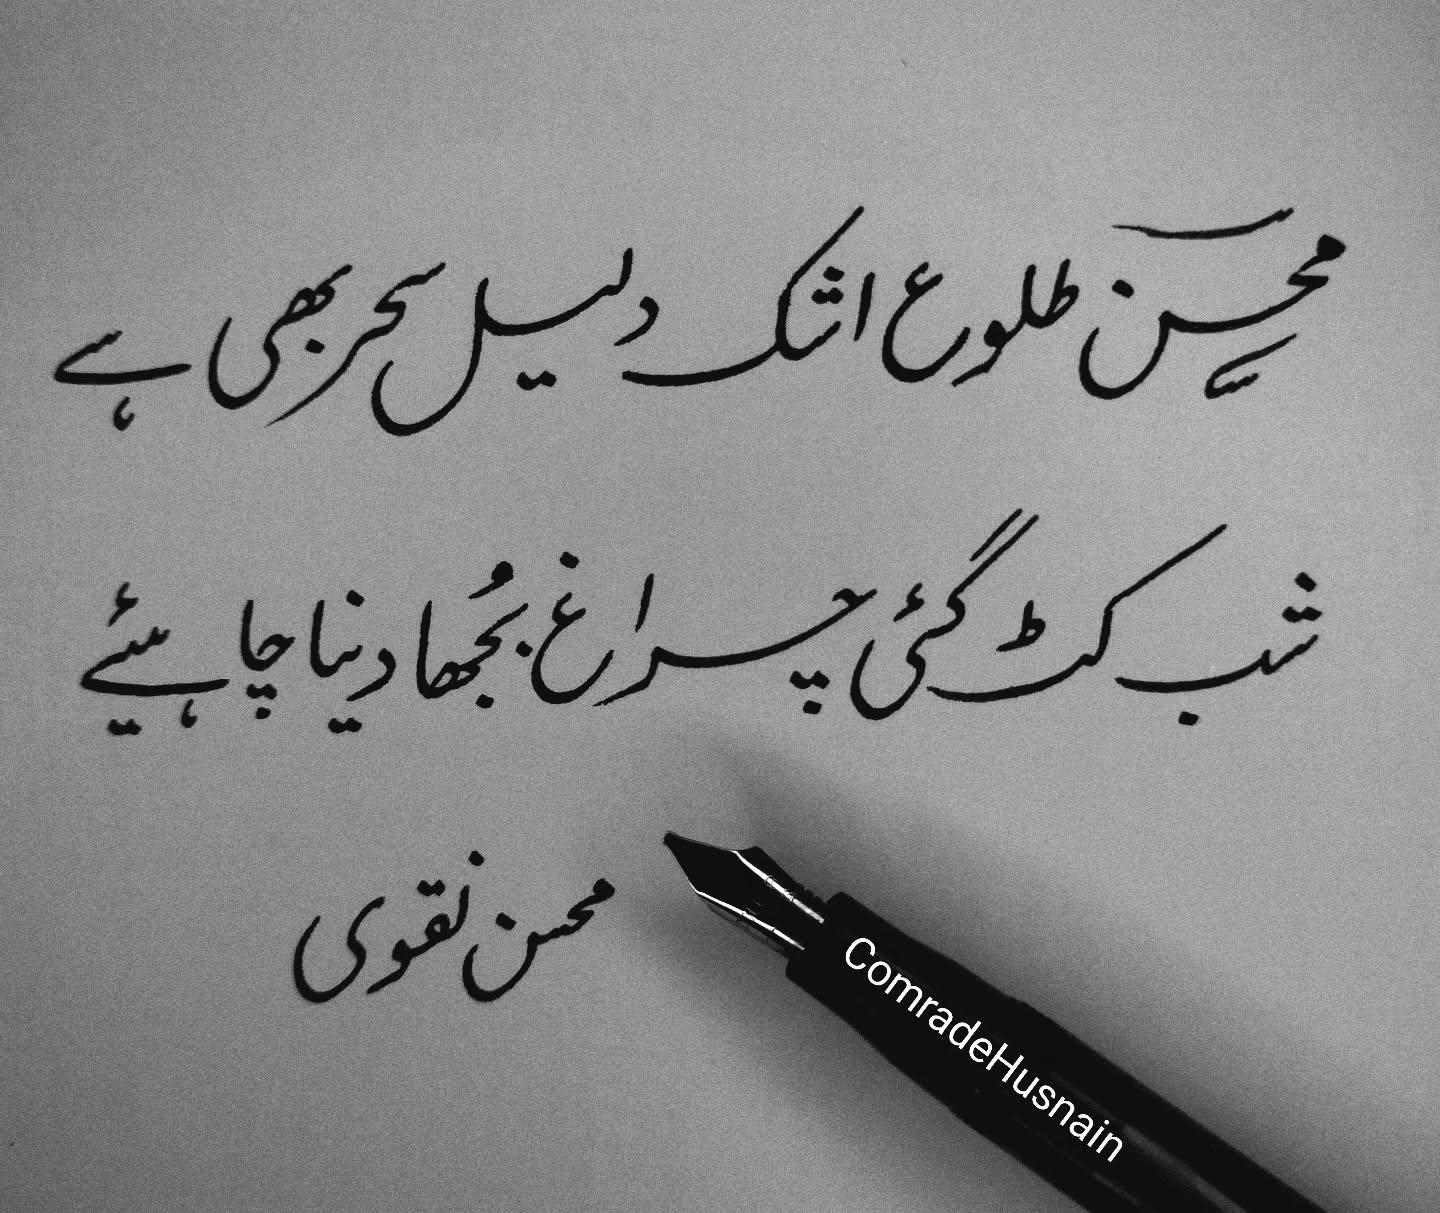 محسنؔ طلوع اشک دلیل سحر بھی ہے
شب کٹ گئی چراغ بُجھا دینا چاہئیے
محسن نقوی
ComradeHusnain